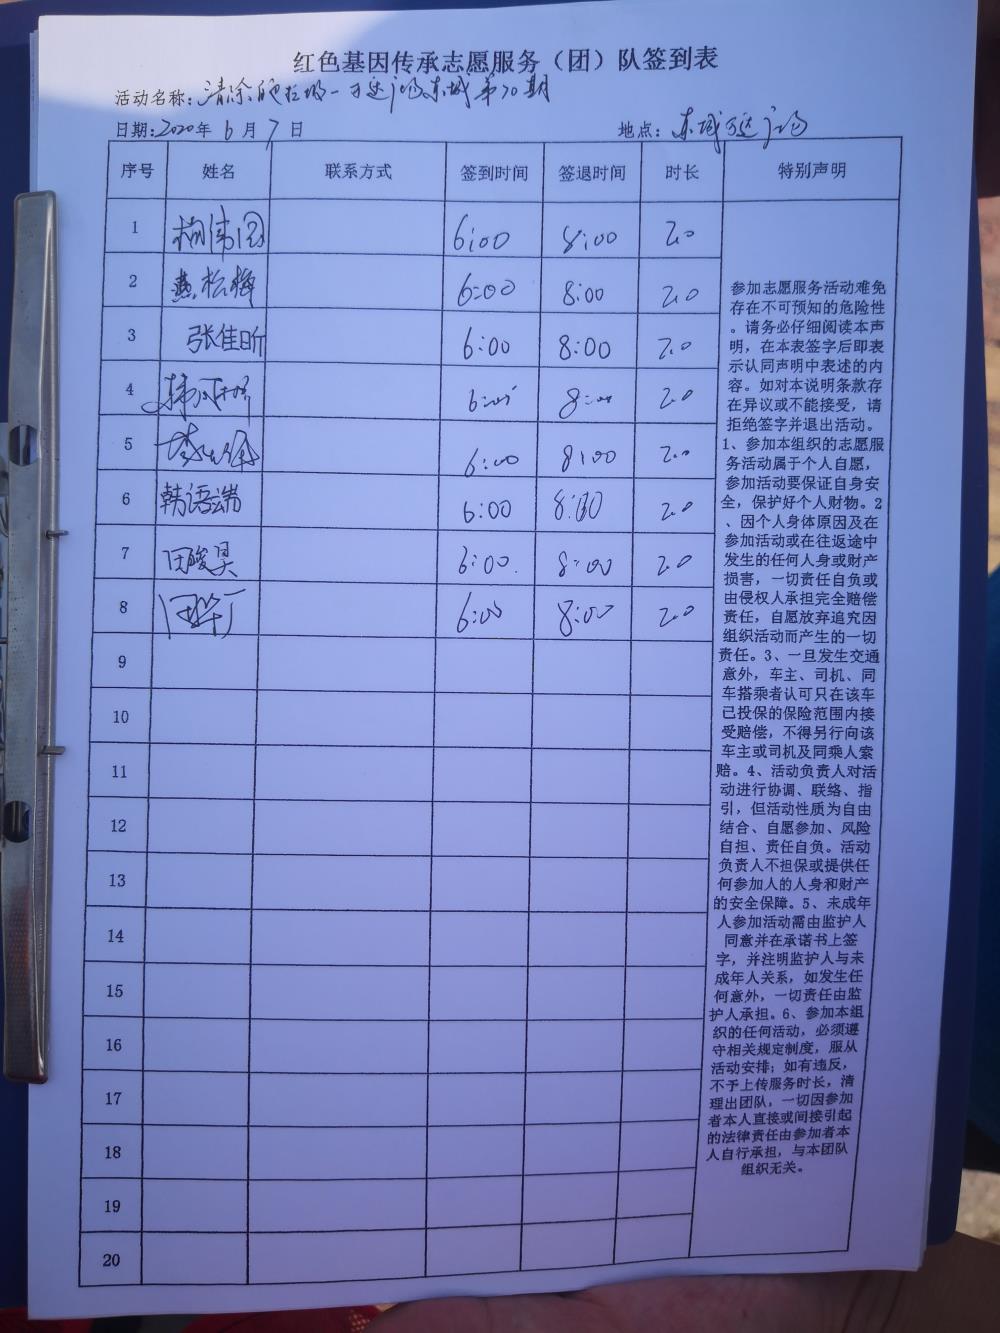 红色基因传承志愿服务（团）队签到表
活动名称：清除 垃圾一万达广场东城第70期
日期：2020年 6 月 7 日 地点：东城万达广场
序号 姓名 联系方式 签到时间 签退时间 时长 特别声明
1 6:00 8:00 2.0
2 燕松梅 6:00 8:00 2.0
3 张佳昕 6:00 8:00 2.0
4 6:00 8:00 2.0
5 6:00 8:00 2.0
6 韩语端 6:00 8:00 2.0
7 田峻昊 6:00. 8:00 2.0
8 6:00 8:00 2.0
9
10
11
12
13
14
15
16
17
18
19
20
参加志愿服务活动难免
存在不可预知的危险性
。请务必仔细阅读本声
明，在本表签字后即表
示认同声明中表述的内
容。如对本说明条款存
在异议或不能接受，请
拒绝签字并退出活动。
1、参加本组织的志愿服
务活动属于个人自愿，
参加活动要保证自身安
全，保护好个人财物。2
、因个人身体原因及在
参加活动或在往返途中
发生的任何人身或财产
损害，一切责任自负或
由侵权人承担完全赔偿
责任，自愿放弃追究因
组织活动而产生的一切
责任。3、一旦发生交通
意外，车主、司机、同
车搭乘者认可只在该车
已投保的保险范围内接
受赔偿，不得另行向该
车主或司机及同乘人索
赔。4、活动负责人对活
动进行协调、联络、指
引，但活动性质为自由
结合、自愿参加、风险
自担、责任自负。活动
负责人不担保或提供任
何参加人的人身和财产
的安全保障。5、未成年
人参加活动需由监护人
同意并在承诺书上签
字，并注明监护人与未
成年人关系，如发生任
何意外，一切责任由监
护人承担。6、参加本组
织的任何活动，必须遵
守相关规定制度，服从
活动安排；如有违反，
不予上传服务时长，清
理出团队，一切因参加
者本人直接或间接引起
的法律责任由参加者本
人自行承担，与本团队
组织无关。